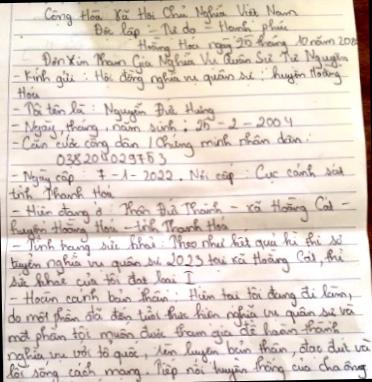 Cộng Hoà Xã Hội Chủ Nghĩa Việt Nam
Độc lập - Tự do - Hạnh phúc
Hoằng Hoá ngày 25 tháng 10 năm 202
Đơn Xin Tham Gia Nghĩa Vụ Quân Sự Tự Nguyện
- Kính gửi : Hội đồng nghĩa vụ quân sự : huyện Hoằng
Hoá
- Tôi tên là : Nguyễn Đức Hưng
- Ngày, tháng, năm sinh : 25 - 2 - 2004
- Căn cước công dân / Chứng minh nhân dân :
038204029753
- Ngày cấp 7-1-2022, Nơi cấp : Cục cảnh sát
tỉnh Thanh Hoá
- Hiện đang ở : Thôn Đức Thành - xã Hoằng Cát -
huyện Hoằng Hoá - tỉnh Thanh Hoá
- Tình trạng sức khoẻ : Theo như kết quả kì thi sơ
tuyển nghĩa vụ quân sự 2023 tại xã Hoằng Cát, thì
sức khoẻ của tôi đạt loại I
- Hoàn cảnh bản thân : Hiện tại tôi đang đi làm,
do một phần đã đến tuổi thực hiện nghĩa vụ quân sự và
một phần tôi muốn được tham gia để hoàn thành
nghĩa vụ với tổ quốc, rèn luyện bản thân, đạo đức và
lối sống cách mạng. Tiếp nối truyền thống của cha ông